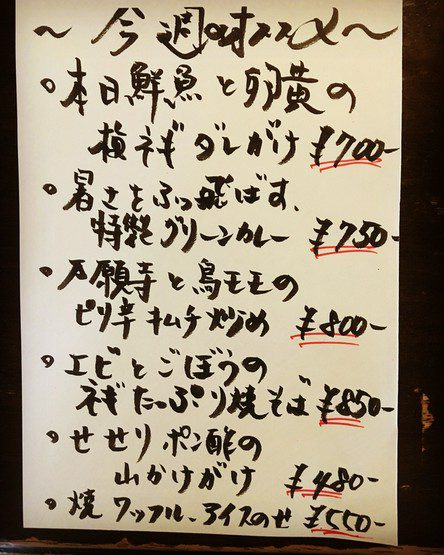 〜今週のオススメ〜
・本日鮮魚と卵黄の
ネギダレがけ ¥700-
・暑さをぶっ飛ばす、
特製グリーンカレー ¥750-
・万願寺と鳥モモの
ピリ辛キムチ炒め ¥800-
・エビとごぼうの
ネギたっぷり焼そば ¥850-
・せせりポン酢の
山かけがけ ¥480-
・焼ワッフル、アイスのせ ¥550-